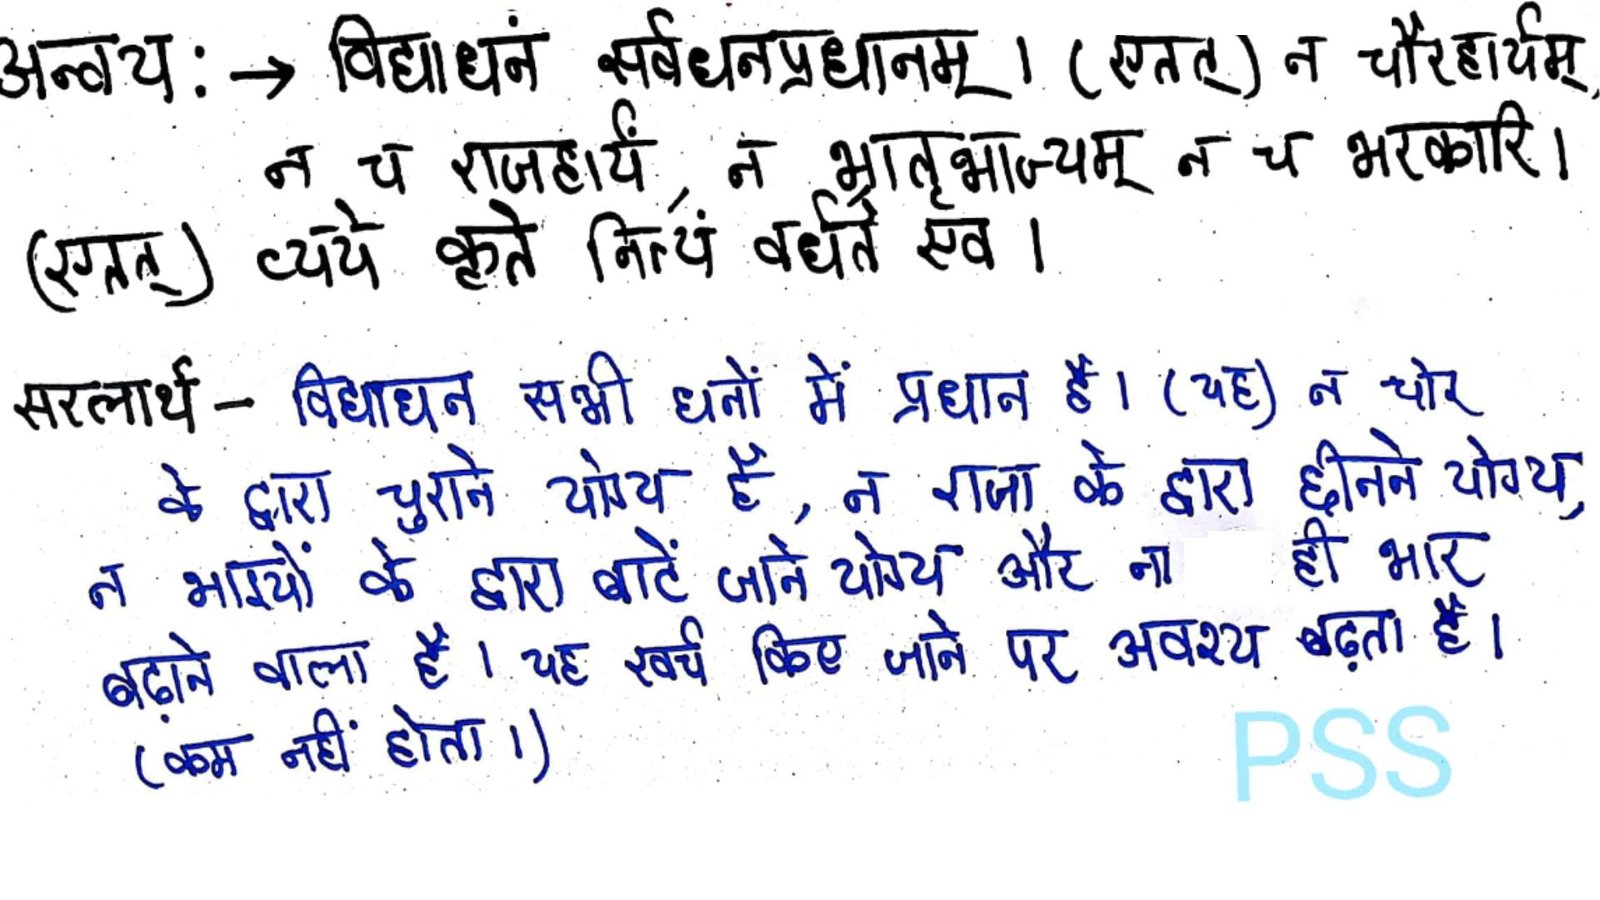 अन्वय : → विद्याधनं सर्वधनप्रधानम् । (एतत्) न चौरहार्यम्,
न च राजहार्यं, न भ्रातृभाज्यम् न च भारकारि ।
(एतत्) व्यये कृते नित्यं वर्धते एव ।
सरलार्थ – विद्याधन सभी धनों में प्रधान है । (यह) न चोर
के द्वारा चुराने योग्य है, न राजा के द्वारा छीनने योग्य,
न भाइयों के द्वारा बाटें जाने योग्य और ना ही भार
बढ़ाने वाला है । यह खर्च किए जाने पर अवश्य बढ़ता है ।
(कम नहीं होता ।)
PSS